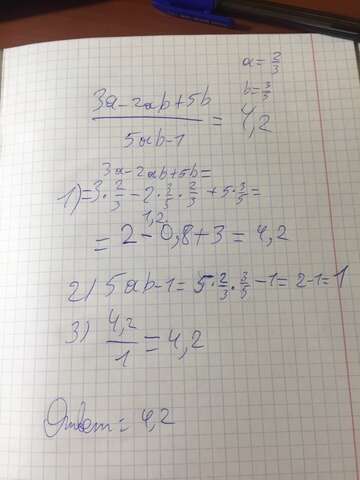 a = 2/3
b = 3/5
(3a - 2ab + 5b)/(5ab - 1) = 4,2
3a - 2ab + 5b =
1) = 3 · 2/3 - 2 · 3/5 · 2/3 + 5 · 3/5 =
1,2
= 2 - 0,8 + 3 = 4,2
2) 5ab - 1 = 5 · 2/3 · 3/5 - 1 = 2 - 1 = 1
3) 4,2/1 = 4,2
Ответ = 4,2